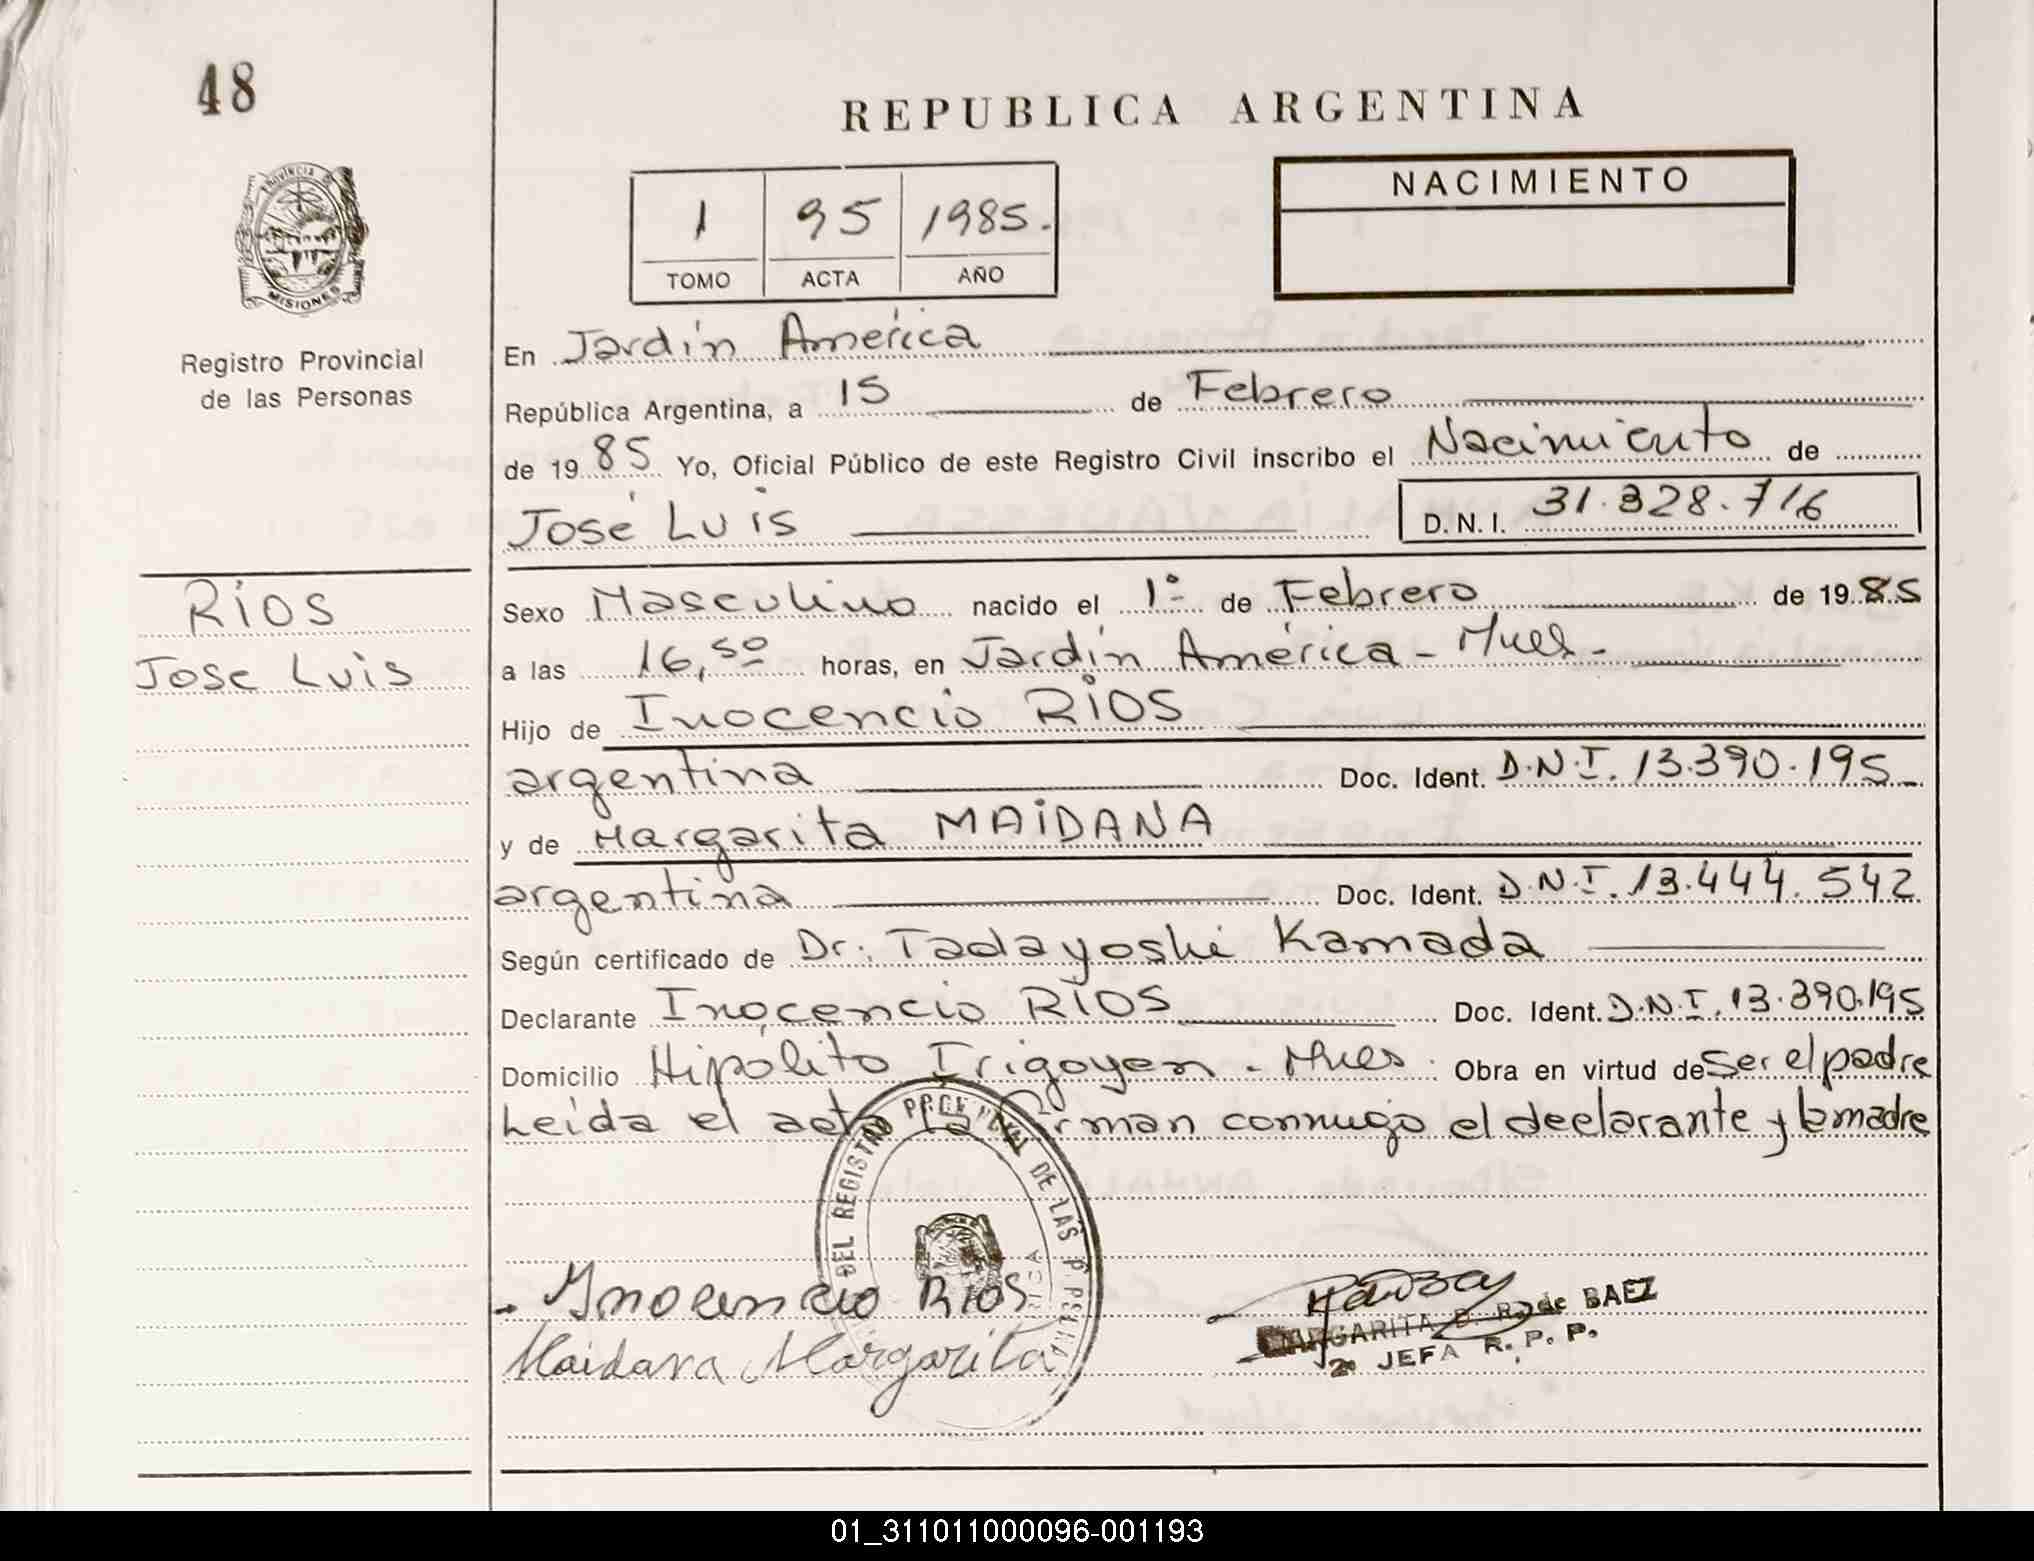 48
REPUBLICA ARGENTINA
Provincia de
MISIONES
Registro Provincial
de las Personas
1 95 1985.
TOMO ACTA AÑO
NACIMIENTO
En Jardín América
República Argentina, a 15 de Febrero
de 1985 Yo, Oficial Público de este Registro Civil inscribo el Nacimiento de
José Luis D. N. I. 31.328.716
RIOS
Jose Luis
Sexo Masculino nacido el 1º de Febrero de 1985
a las 16,50 horas, en Jardín América - Mnes.-
Hijo de Inocencio RIOS
argentina Doc. Ident. D.N.I. 13.390.195
y de Margarita MAIDANA
argentina Doc. Ident. D.N.I. 13.444.542
Según certificado de Dr. Tadayoshi Kamada
Declarante Inocencio RIOS Doc. Ident. D.N.I. 13.390.195
Domicilio Hipólito Irigoyen - Mnes. Obra en virtud de ser el padre
Leída el acta la firman conmigo el declarante y la madre
DEL REGISTRO PROVINCIAL DE LAS P
Inocencio Rios
Maidana Margarita
MARGARITA B. R. de BAEZ
2ª JEFA R. P. P.
01_311011000096-001193